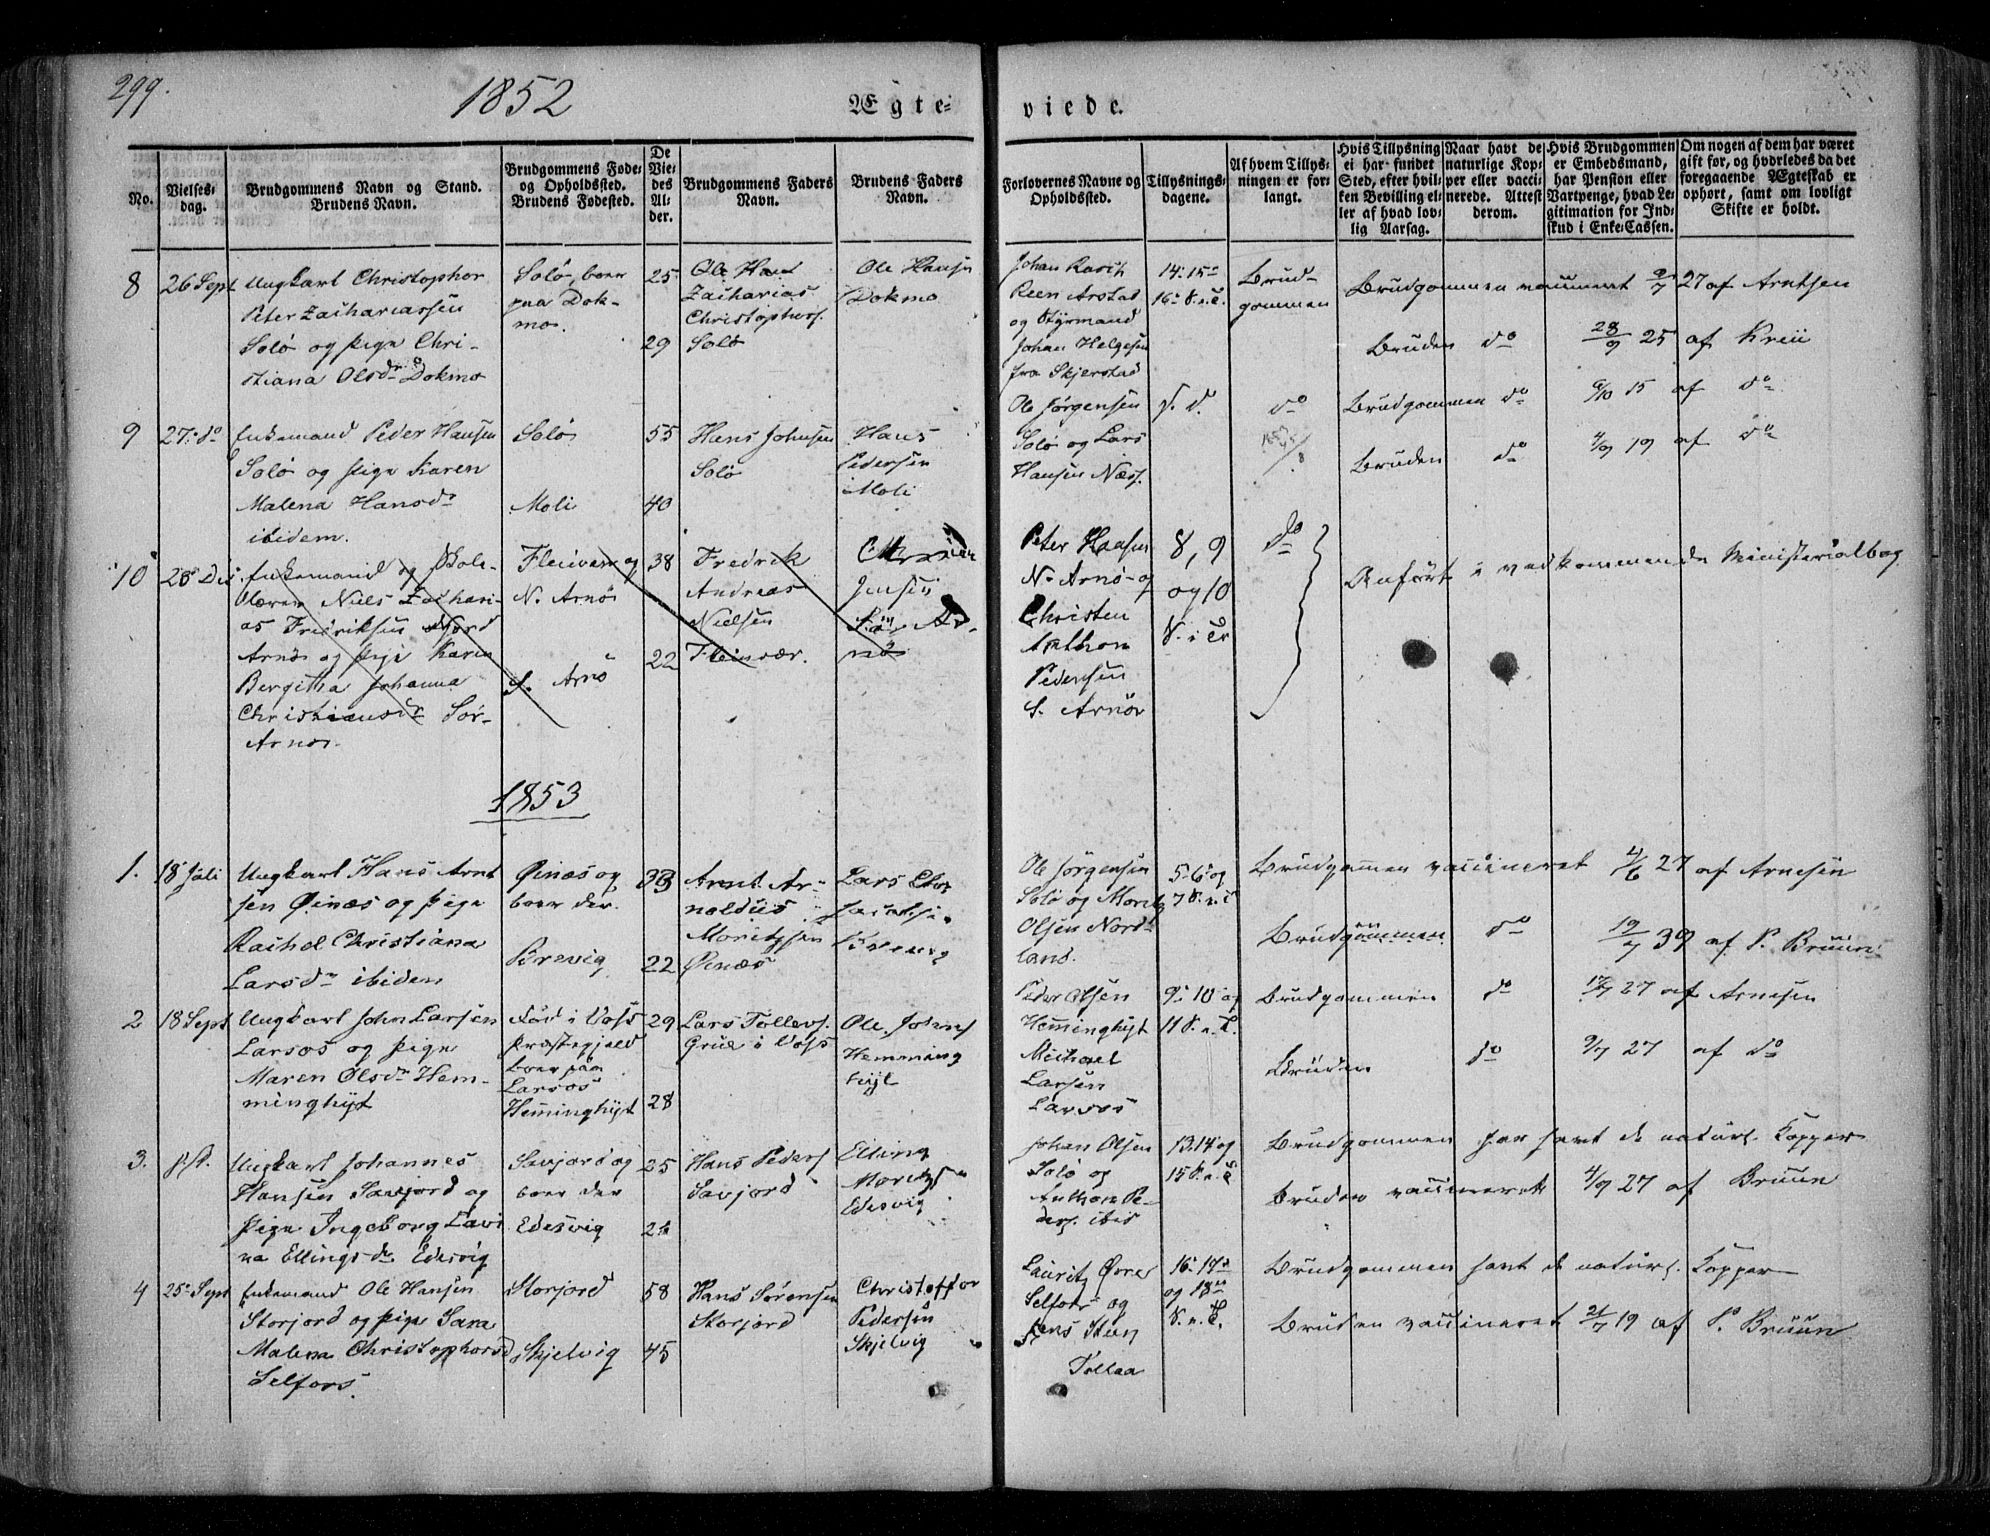 299.
1852
Ægte- viede.
No.
Vielses-
dag.
Brudgommens Navn og Stand.
Brudens Navn.
Brudgommens Føde-
og Opholdssted.
Brudens Fødested.
De
Vie-
des
Al-
der.
Brudgommens Faders
Navn.
Brudens Faders
Navn.
Forlovernes Navne og
Opholdssted.
Tillysnings-
dagene.
Af hvem Tillys-
ningen er for-
langt.
Hvis Tillysning
ei har fundet
Sted, efter hvil-
ken Bevilling el-
ler af hvad lov-
lig Aarsag.
Naar havt de
naturlige Kop-
per eller vacci-
nerede. Attest
derom.
Hvis Brudgommen
er Embedsmand,
har Pension eller
Vartpenge, hvad Le-
gitimation for Ind-
skud i Enke-Cassen.
Om nogen af dem har været
gift før, og hvorledes da det
foregaaende Ægteskab er
ophørt, samt om lovligt
Skifte er holdt.
8
26 Sept
Ungkarl Christopher
Peter Zachariassen
Solø og Pige Chri-
stiana Olsdr. Dokmo
Solø, boer
paa Dok-
mo.
25
29
Zacharias
Christophers.
Solø
Ole Hansen
Dokmo
Johan
Arstad
og Styrmand
Johan Helgesen
fra Skjerstad
14. 15
16
Brud-
gommen
Brudgommen 27 af Arntsen
Bruden do 28/9 25 af
9
27. do
Enkemand Peder Hansen
Solø og Pige Karen
Malena Hansdr
ibidem.
Solø
Moli
55
40
Hans Johnsen
Solø
Hans
Pedersen
Moli
Ole Jørgensen
Solø og Lars
Hansen Næss.
do
Brudgommen do 6/10 15 af do
Bruden do 4/9 19 af do
10
28 Dec
Enkemand og Skole-
lærer Niels Zachari-
as Fredriksen Nord
Arnø og Pige Karen
Bergitha Johanna
Christiansdr Sør-
Arnø.
Fleinvær og
N. Arnø
S. Arnø
38
22
Fredrik
Andreas
Nielsen
Fleinvær.
Jensen
Sør Ar-
nø
Peter Hansen
N. Arnø og
Christen
Anthon
Pedersen
S. Arnø
8, 9
og 10
do
Anført i vedkommende Ministerialbog
1853
1.
18 Juli
Ungkarl Hans Arnt
sen Øinæs og Pige
Rachel Christiana
Larsdr ibidem
Øinæs og
boer der.
Brevig
33
22
Arnt Ar-
noldus
Moritzsen
Øinæs
Lars
Brevig
Ole Jørgensen
Solø og Moritz
Olsen Nord-
land.
5. 6 og
7
Brudgommen vaccineret 4/6 27 af Arnesen
Brudgommen do 19/7 39 af P. Bruun
2
18 Sept
Ungkarl John Larsen
Larsos og Pige
Maren Olsdr Hem-
minghyt
Fød i Voss
Præstegjeld
boer paa
Larsos
Hemminghyt
29
28
Lars Tollevs.
Grue i Voss
Ole Johns
Hemming
hyt
Peder Olsen
Hemminghyt
Michael
Larsen
Larsos
9. 10 og
11
Brudgommen do 17/7 27 af Arnesen
Bruden do 9/7 27 af do
3.
Ungkarl Johannes
Hansen Savjord og
Pige Ingeborg Lavi
na Ellingsdr Edesvig
Savjord og
boer der
Edesvig
25
Hans Peders
Savjord
Elling
Moritzs
Edesvig
Johan Olsen
Solø og
Anthon Pe-
ders. ibid
13. 14 og
15
Brudgommen har havt de naturl. Kopper
Bruden vaccineret 4/9 27 af Bruun
4
25 Sept
Enkemand Ole Hansen
Storjord og Pige Sara
Malena Christophersd
Selfors.
Storjord
Skjelvig
58
45
Hans Sørensen
Storjord
Christoffer
Pedersen
Skjelvig
Lauritz Øvre
Selfors og
Jens Steen
Tollaa
16. 17
og 18
Brudgommen havt de naturl. Kopper
Bruden vaccineret 21/7 19 af P. Bruun